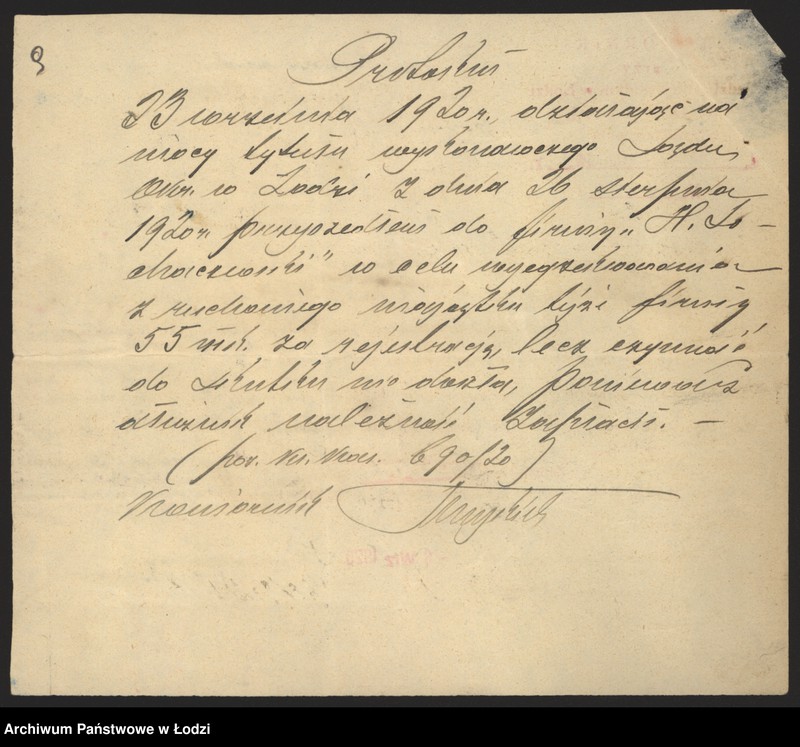 9
Protokuł
23 września 1920 r., działając na
mocy tytułu wykonawczego Sądu
Okr. w Łodzi z dnia 26 sierpnia
1920 r. przyszedłem do firmy „H. So-
chaczewski" w celu wyegzekwowania
z ruchomego majątku tejże firmy
55 mk. za rejestrację, lecz czynność
do skutku nie doszła, ponieważ
dłużnik należność zapłacił. —
(por. Kw. 690/20)
Komornik
Archiwum Państwowe w Łodzi